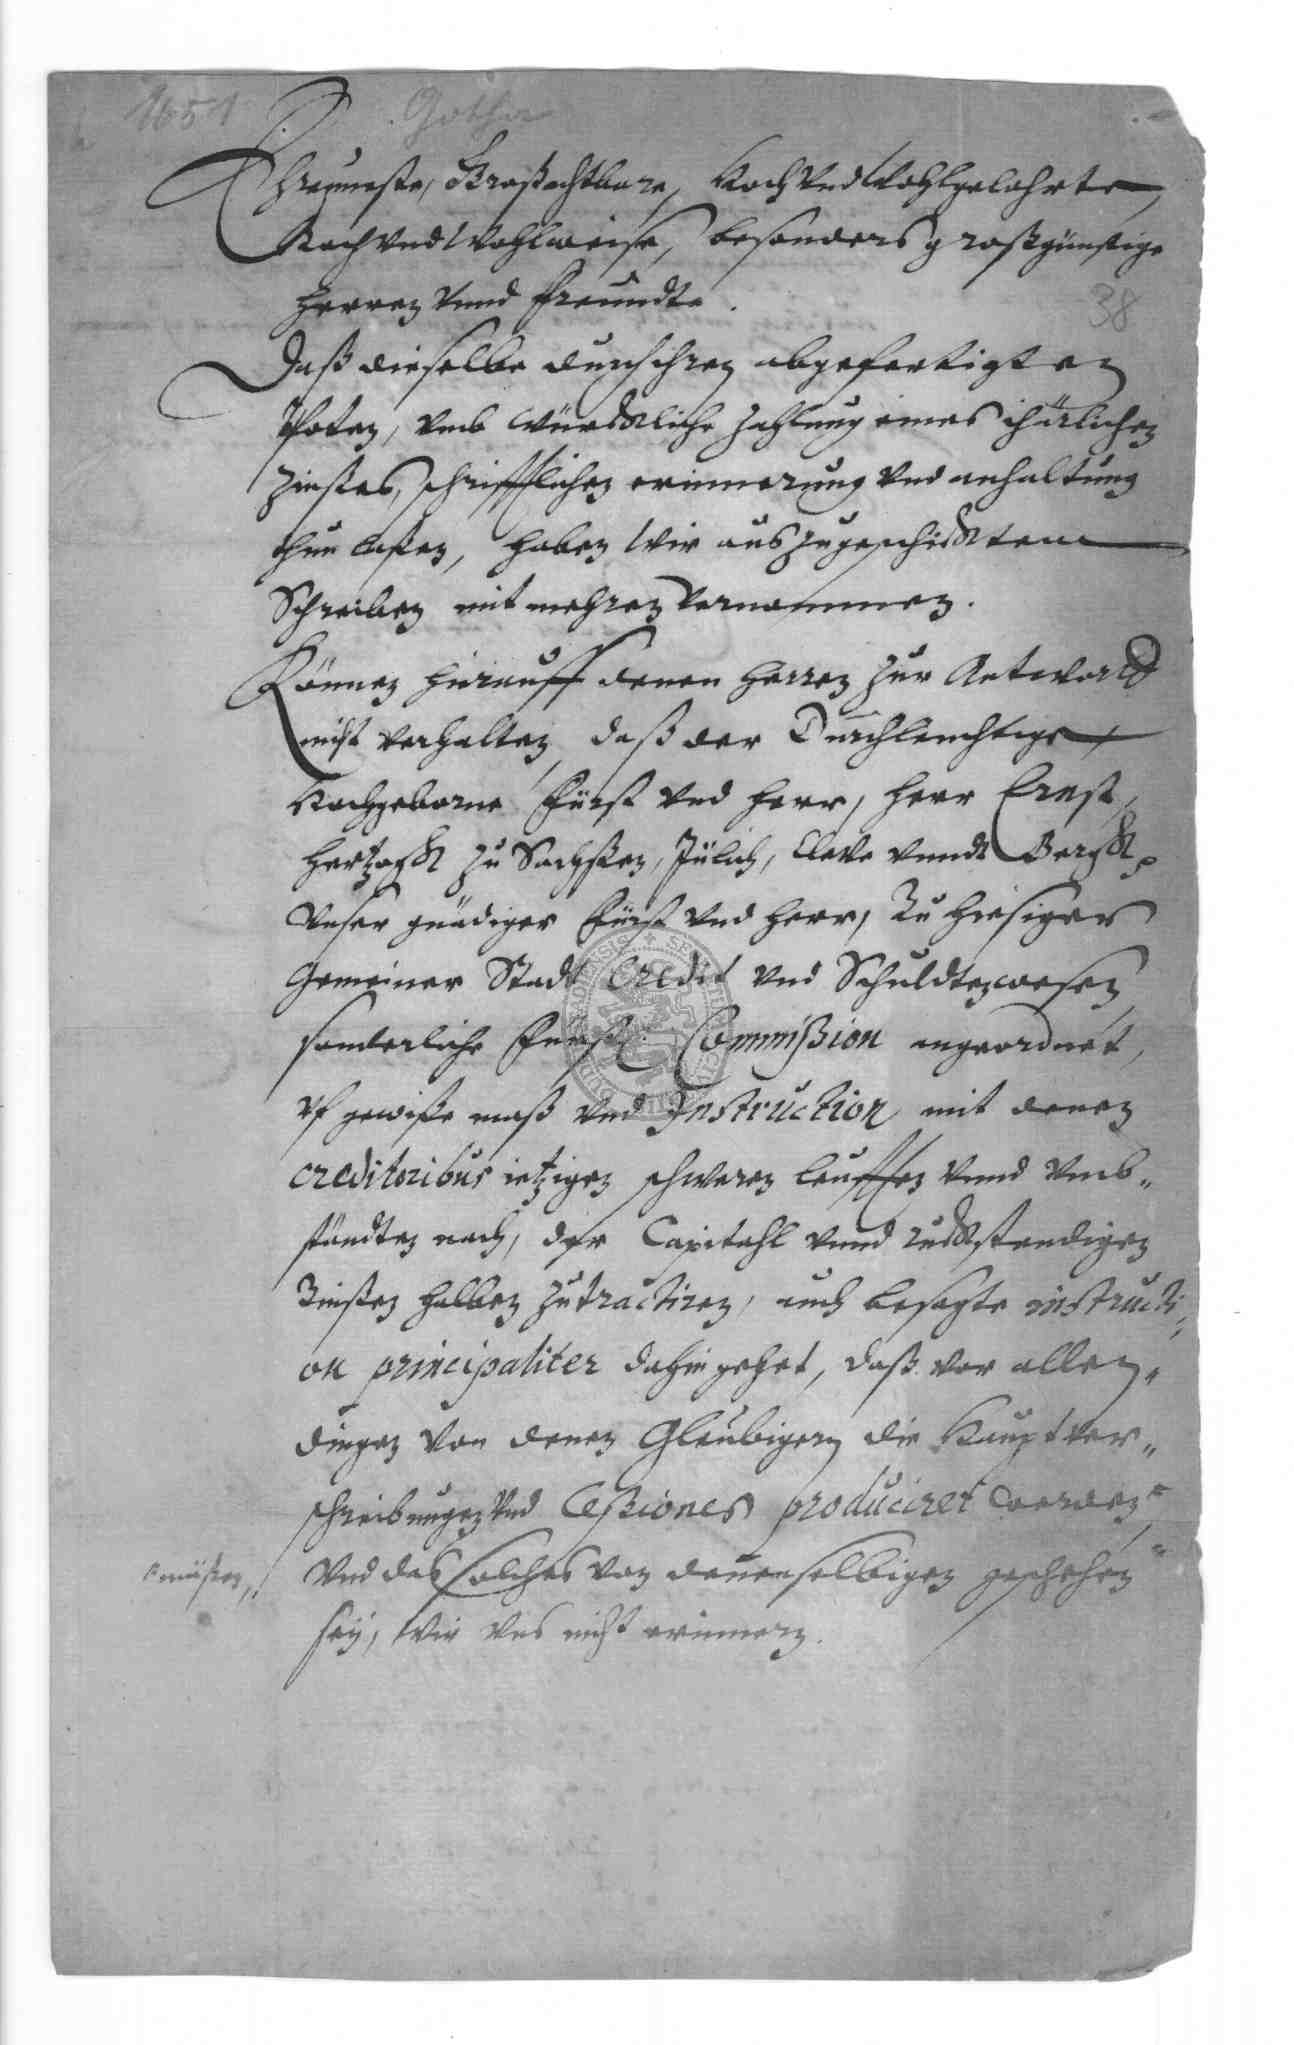 1651 Gotha
Ehrnueste, Großachtbare, Hoch Vnd Wohlgelahrte,
Hoch Vnd Wohlweise, besonders großgünstige
Herren Vnnd Freundte.
38
Daß dieselbe durch ihren abgefertigten
Poten, vmb würckliche Zahlung eines jährlichen
Zinßes, schrifftlichen erinnerung Vnd anhaltung
thun laßen, haben Wir aus zugeschicktem
Schreiben mit mehren Vernommen.
Können hierauff denen Herren zur Antword
nicht verhalten, daß der Durchleuchtige,
Hochgeborne Fürst Vnd Herr, Herr Ernst,
Hertzogk zu Sachßen, Jülich, Cleve vnndt Bergk
Vnser gnädiger Fürst Vnd Herr, Zu hiesiger
Gemeiner Stadt Credit Vnd Schuldtenwesen
sonderliche Fürstl. Commißion angeordnet,
vf gewiße maß Vnd Instruction mit denen
creditoribus ietzigen schweren leufften Vnnd Vmb-
ständten nach, der Capitahl Vnnd ruckstendigen
Zinßen halben zu tractiren, auch besagte instructi-
on principaliter dahin gehet, daß vor allen
dingen von denen Gleubigern die Hauptver-
schreibungen Vnd Ceßiones produciret werden
müßen, Vnd das solches von denenselbigen geschehen
sey, Wir Vns nicht erinnern.